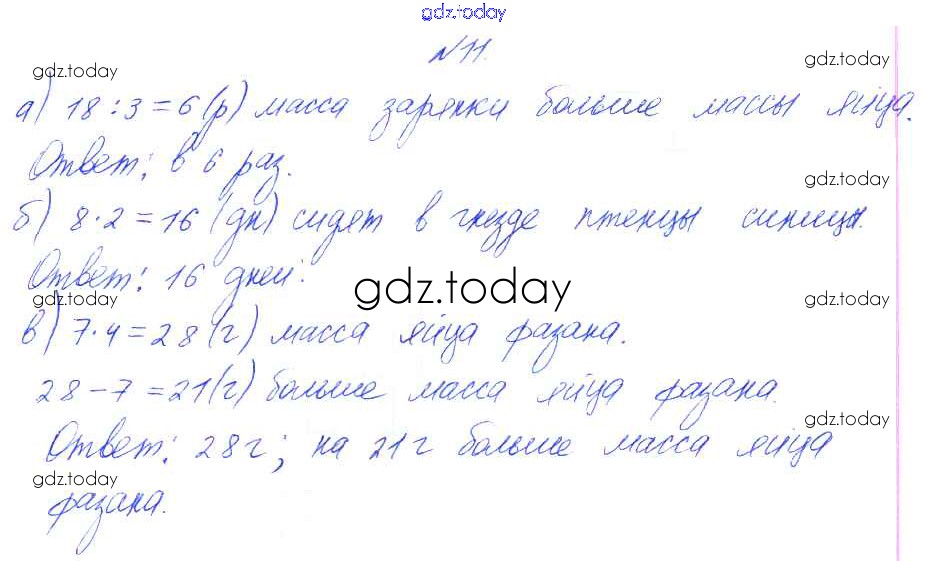 gdz.today
№11.
gdz.today gdz.today
а) 18 : 3 = 6 (р) масса зарянки больше массы яйца.
Ответ: в 6 раз.
gdz.today
б) 8 · 2 = 16 (дн) сидят в гнезде птенцы синицы.
Ответ: 16 дней.
gdz.today gdz.today gdz.today
в) 7 · 4 = 28 (г) масса яйца фазана.
28 – 7 = 21 (г) больше масса яйца фазана.
gdz.today
Ответ: 28 г; на 21 г больше масса яйца
gdz.today
фазана.